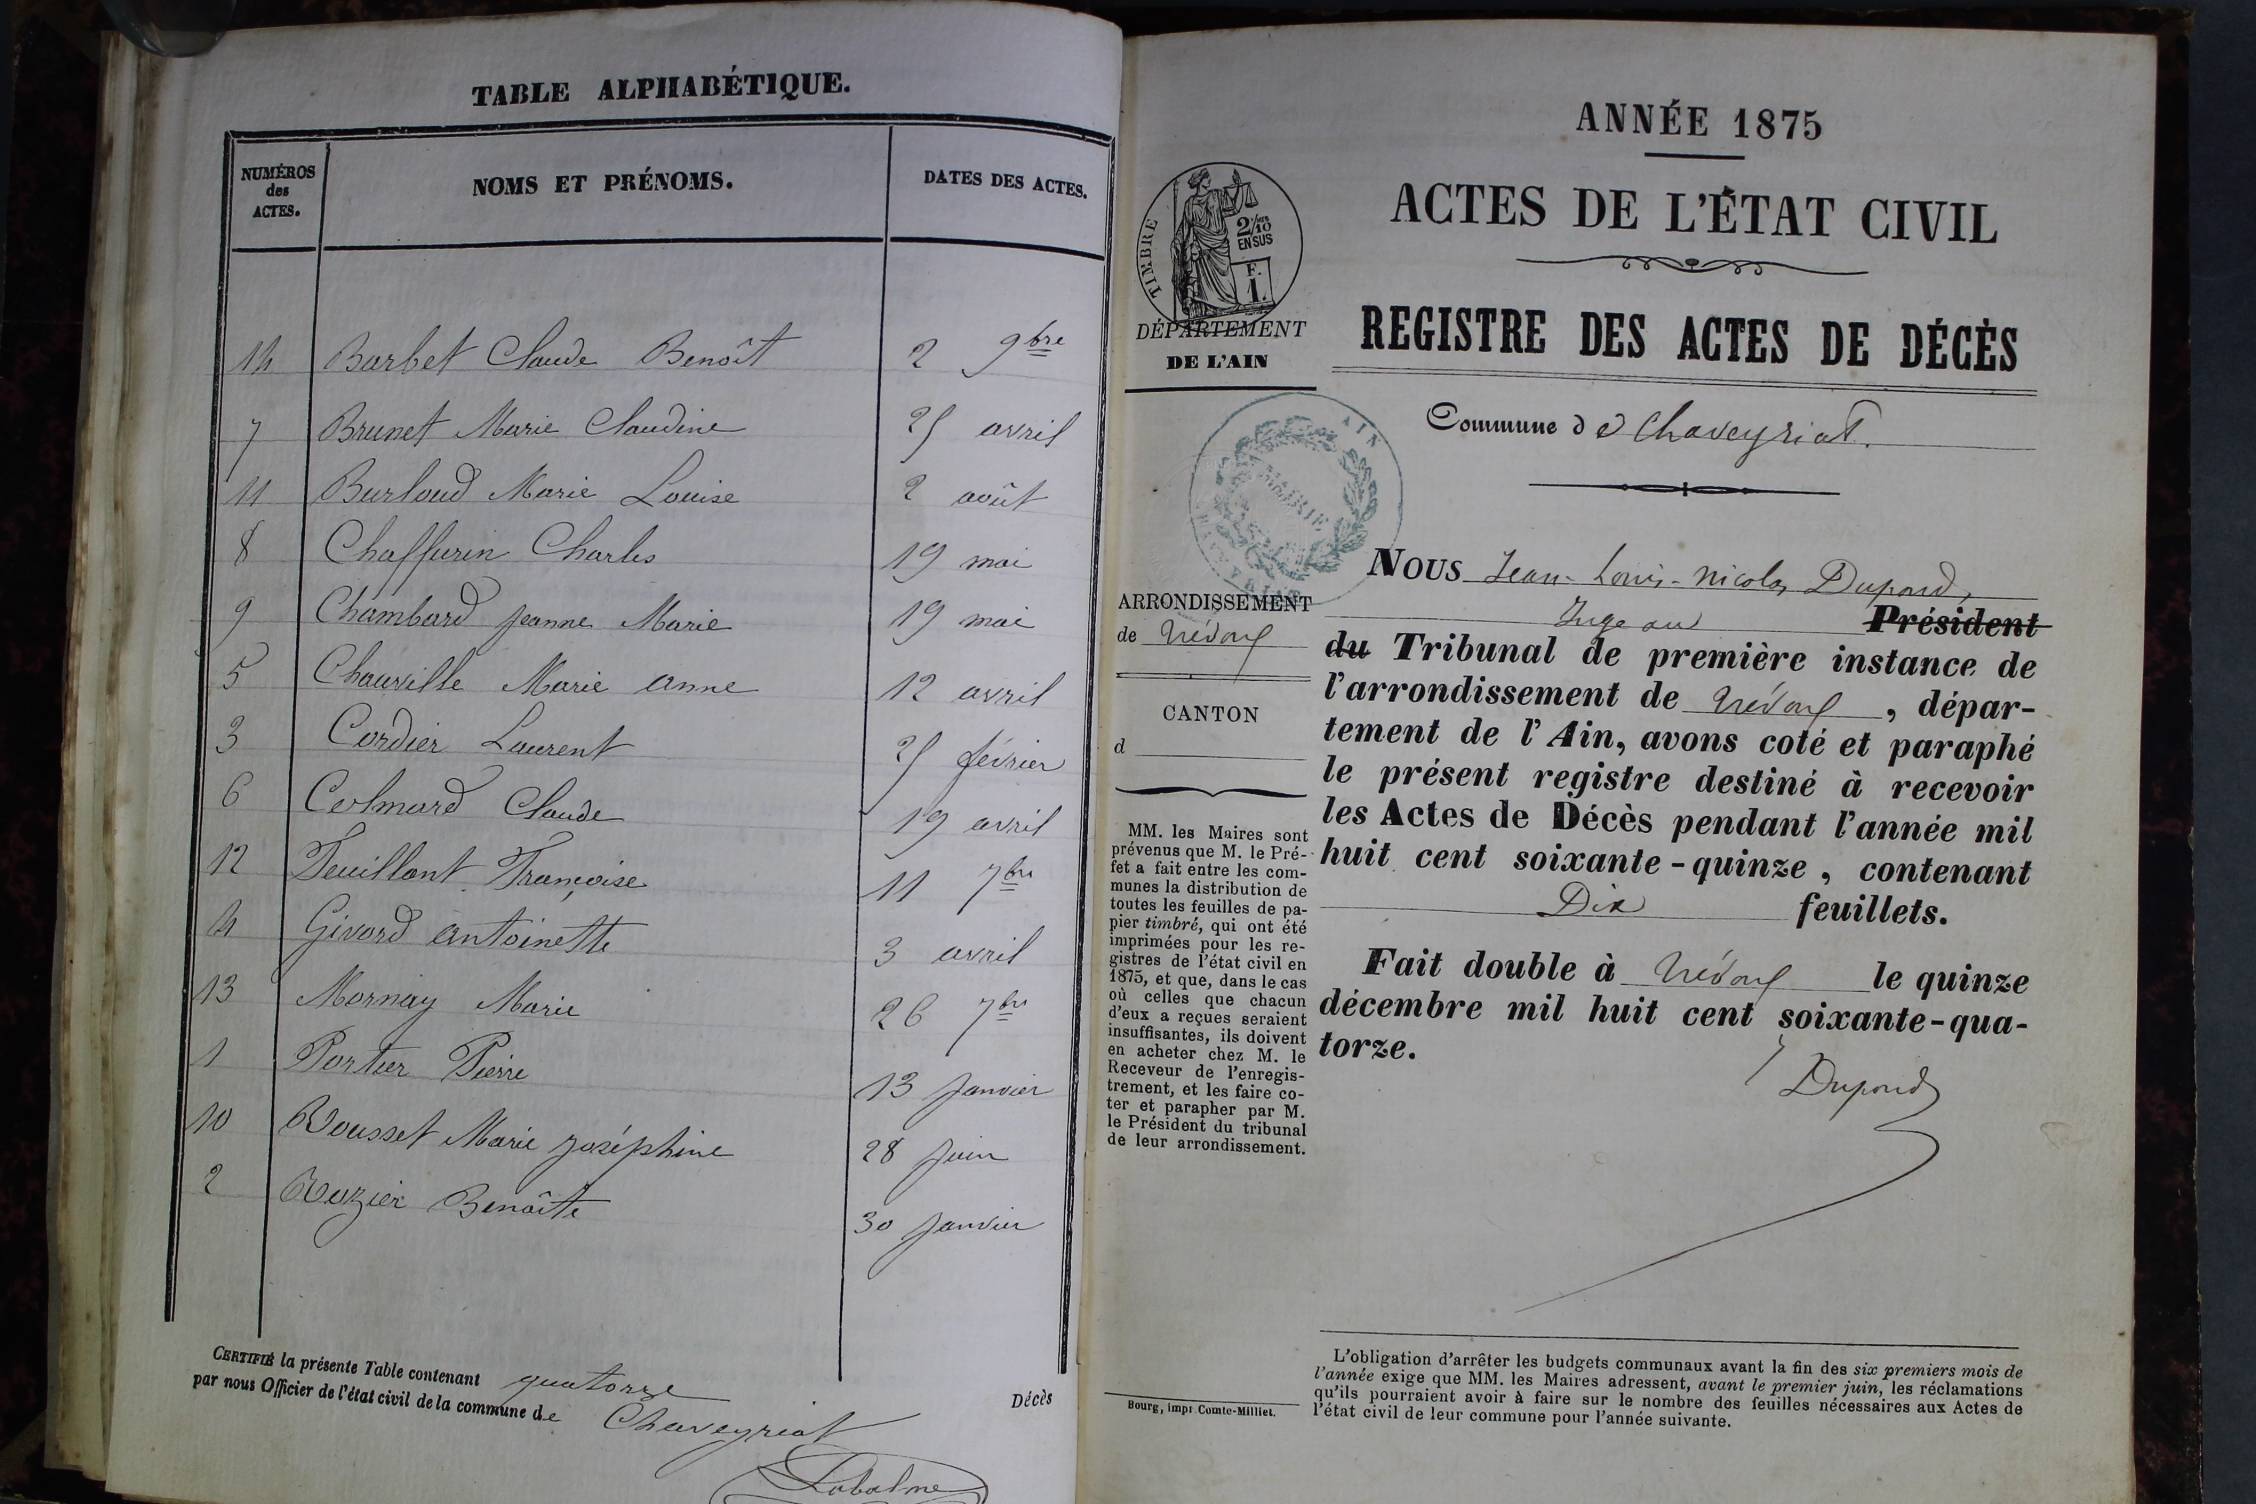 TABLE ALPHABÉTIQUE.
NUMÉROS
des
ACTES.
NOMS ET PRÉNOMS.
DATES DES ACTES.
14 Barbet Claude Benoît 2 9bre
7 Brunet Marie Claudine 25 avril
11 Burloud Marie Louise 2 août
8 Chaffurin Charles 19 mai
9 Chambard Jeanne Marie 19 mai
5 Chauville Marie anne 12 avril
3 Cordier Laurent 25 février
6 Claude 19 avril
12 Feuillant Françoise 11 7bre
4 Givord antoinette 3 avril
13 Mornay Marie 26 7bre
1 Portier Pierre 13 Janvier
10 Rousset Marie Joséphine 28 Juin
2 Rozier Benoîte 30 Janvier
CERTIFIÉ la présente Table contenant quatorze Décès
par nous Officier de l'état civil de la commune de Chaveyriat
Labalme
ANNÉE 1875
ACTES DE L'ÉTAT CIVIL
REGISTRE DES ACTES DE DÉCÈS
TIMBRE
2/10
EN SUS
F.
1.
DÉPARTEMENT
DE L'AIN
Commune de Chaveyriat.
AIN
MAIRIE
CHAVEYRIAT
ARRONDISSEMENT
de Trévoux
CANTON
d
MM. les Maires sont
prévenus que M. le Pré-
fet a fait entre les com-
munes la distribution de
toutes les feuilles de pa-
pier timbré, qui ont été
imprimées pour les re-
gistres de l'état civil en
1875, et que, dans le cas
où celles que chacun
d'eux a reçues seraient
insuffisantes, ils doivent
en acheter chez M. le
Receveur de l'enregis-
trement, et les faire co-
ter et parapher par M.
le Président du tribunal
de leur arrondissement.
Bourg, impr Comte-Milliet.
NOUS Jean-Louis-Nicolas Dupond,
Juge au Président
du Tribunal de première instance de
l'arrondissement de Trévoux, dépar-
tement de l'Ain, avons coté et paraphé
le présent registre destiné à recevoir
les Actes de Décès pendant l'année mil
huit cent soixante-quinze, contenant
Dix feuillets.
Fait double à Trévoux le quinze
décembre mil huit cent soixante-qua-
torze.
Dupond
L'obligation d'arrêter les budgets communaux avant la fin des six premiers mois de
l'année exige que MM. les Maires adressent, avant le premier juin, les réclamations
qu'ils pourraient avoir à faire sur le nombre des feuilles nécessaires aux Actes de
l'état civil de leur commune pour l'année suivante.